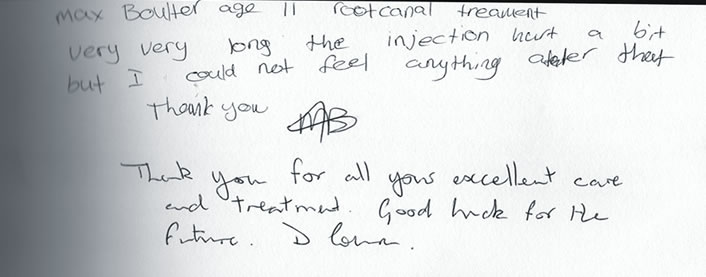 Max Boulter age 11 root canal treament
very very long the injection hurt a bit
but I could not feel anything after that
Thank you MB
Thank you for all yours excellent care
and treatment. Good luck for the
future. D